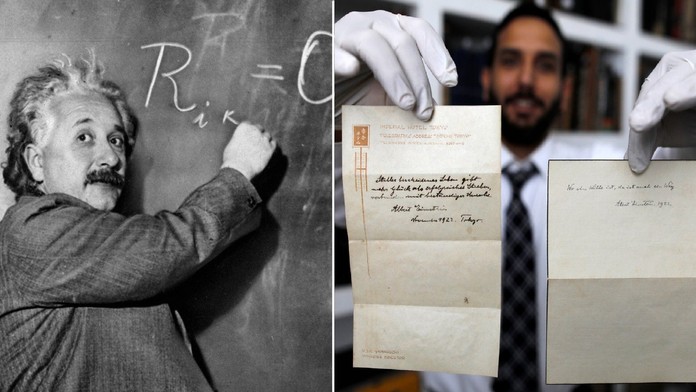 R i κ = 0
IMPERIAL HOTEL TOKYO
Stilles bescheidenes Leben gibt
mehr Glück als erfolgreiches Streben,
verbunden mit beständiger Unruhe.
Albert Einstein
November 1922. Tokyo.
Wo ein Wille ist, da ist auch ein Weg
Albert Einstein. 1922.